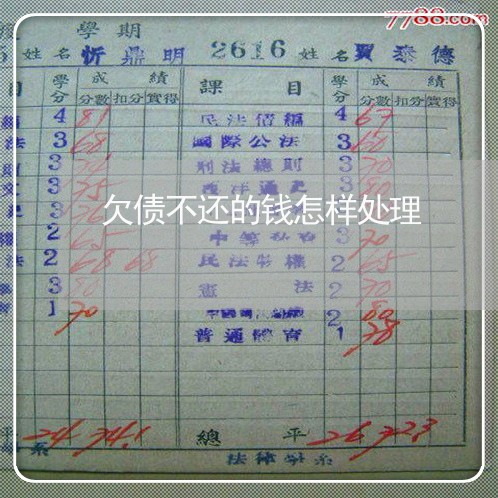 7788.com
學期
姓名 忻鼎明 2616 姓名 賈泰德
目 學分 成績 課目 學分 成績
分數 扣分 實得 分數 扣分 實得
4 81 民法債編 4 67
法 3 68 國際公法 3 60
3 刑法總則 3 70
3 75 西洋通史 3 80
欠债不还的钱怎样处理
2 65 3 70
法 2 68 68 民法物權 2 65
3 80 憲法 2 70
1 70 2 80
普通體育 1 78
平 24 74.1 總平 26 72.3
系 法律學系